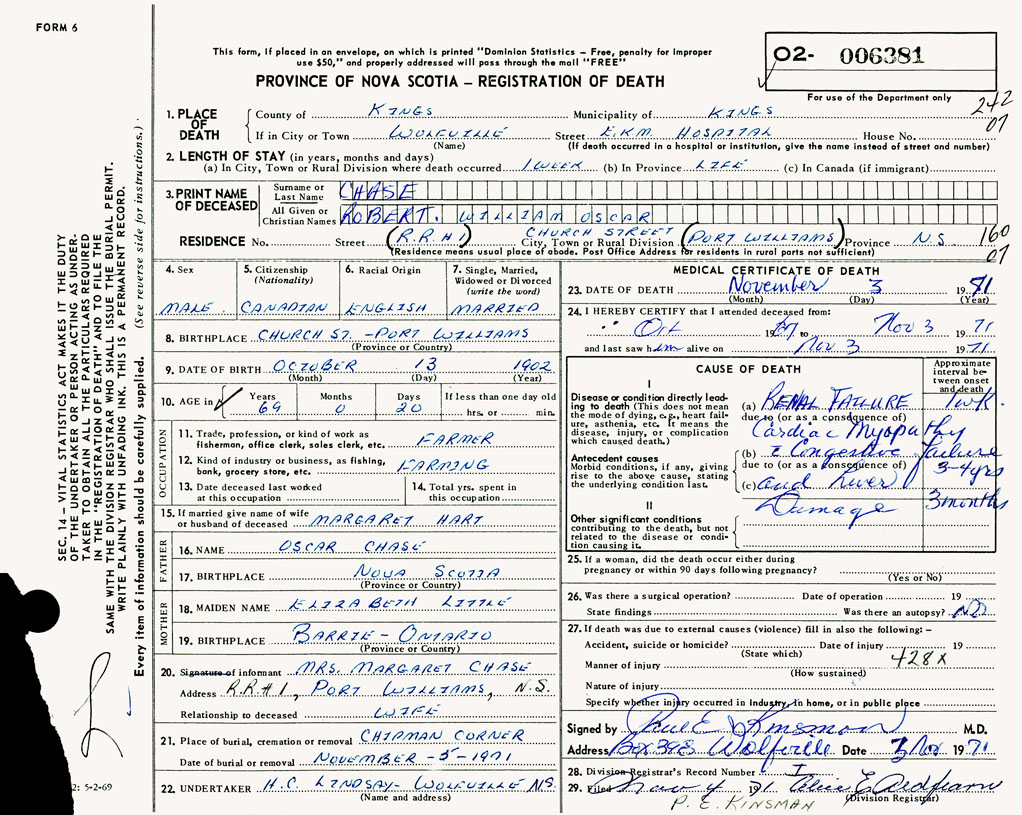 FORM 6
This form, if placed in an envelope, on which is printed "Dominion Statistics – Free, penalty for improper
use $50," and properly addressed will pass through the mail "FREE"
PROVINCE OF NOVA SCOTIA – REGISTRATION OF DEATH
02- 006381
For use of the Department only
242
07
1. PLACE OF DEATH
County of KINGS Municipality of KINGS
If in City or Town WOLFVILLE Street E.K.M. HOSPITAL House No.
(Name) (If death occurred in a hospital or institution, give the name instead of street and number)
2. LENGTH OF STAY (in years, months and days)
(a) In City, Town or Rural Division where death occurred 1 WEEK (b) In Province LIFE (c) In Canada (if immigrant)
3. PRINT NAME OF DECEASED
Surname or Last Name CHASE
All Given or Christian Names ROBERT. WILLIAM OSCAR
RESIDENCE No. Street (R.R #1) CHURCH STREET City, Town or Rural Division (PORT WILLIAMS) Province N.S.
(Residence means usual place of abode. Post Office Address for residents in rural parts not sufficient)
160
07
4. Sex
MALE
5. Citizenship (Nationality)
CANADIAN
6. Racial Origin
ENGLISH
7. Single, Married, Widowed or Divorced (write the word)
MARRIED
8. BIRTHPLACE CHURCH ST. - PORT WILLIAMS
(Province or Country)
9. DATE OF BIRTH OCTOBER 13 1902
(Month) (Day) (Year)
10. AGE in Years Months Days If less than one day old
69 0 20 hrs. or min.
OCCUPATION
11. Trade, profession, or kind of work as fisherman, office clerk, sales clerk, etc. FARMER
12. Kind of industry or business, as fishing, bank, grocery store, etc. FARMING
13. Date deceased last worked at this occupation
14. Total yrs. spent in this occupation
15. If married give name of wife or husband of deceased MARGARET HART
FATHER
16. NAME OSCAR CHASE
17. BIRTHPLACE NOVA SCOTIA
(Province or Country)
MOTHER
18. MAIDEN NAME ELIZABETH LITTLE
19. BIRTHPLACE BARRIE - ONTARIO
(Province or Country)
20. Signature of informant MRS. MARGARET CHASE
Address R.R #1, PORT WILLIAMS, N.S.
Relationship to deceased WIFE
21. Place of burial, cremation or removal CHIPMAN CORNER
Date of burial or removal NOVEMBER - 5 - 1971
22. UNDERTAKER H.C. LINDSAY - WOLFVILLE N.S.
(Name and address)
MEDICAL CERTIFICATE OF DEATH
23. DATE OF DEATH November 3 1971
(Month) (Day) (Year)
24. I HEREBY CERTIFY that I attended deceased from:
Oct 19 to Nov 3 1971
and last saw him alive on Nov 3 1971
CAUSE OF DEATH
Approximate interval between onset and death
I
Disease or condition directly leading to death (This does not mean the mode of dying, e.g., heart failure, asthenia, etc. It means the disease, injury, or complication which caused death.)
(a) RENAL FAILURE 1 wk.
due to (or as a consequence of)
Cardiac Myopathy
Antecedent causes
Morbid conditions, if any, giving rise to the above cause, stating the underlying condition last.
(b) c Congestive failure
due to (or as a consequence of) 3-4 yrs
(c) and Liver
Damage 3 months
II
Other significant conditions contributing to the death, but not related to the disease or condition causing it.
25. If a woman, did the death occur either during pregnancy or within 90 days following pregnancy?
(Yes or No)
26. Was there a surgical operation? Date of operation 19
State findings Was there an autopsy? NO
27. If death was due to external causes (violence) fill in also the following: –
Accident, suicide or homicide? Date of injury 19
(State which) 428X
Manner of injury
(How sustained)
Nature of injury
Specify whether injury occurred in Industry, in home, or in public place
Signed by Paul E Kinsman M.D.
Address Box 398 Wolfville Date 3 Nov 1971
28. Division Registrar's Record Number
29. Filed Nov 4 1971
(Division Registrar)
P. E. KINSMAN
SEC. 14 – VITAL STATISTICS ACT MAKES IT THE DUTY
OF THE UNDERTAKER OR PERSON ACTING AS UNDER-
TAKER TO OBTAIN ALL THE PARTICULARS REQUIRED
IN THE "REGISTRATION OF DEATH" AND TO FILE THE
SAME WITH THE DIVISION REGISTRAR WHO SHALL ISSUE THE BURIAL PERMIT.
WRITE PLAINLY WITH UNFADING INK. THIS IS A PERMANENT RECORD.
Every item of information should be carefully supplied. (See reverse side for instructions.)
2: 5-2-69